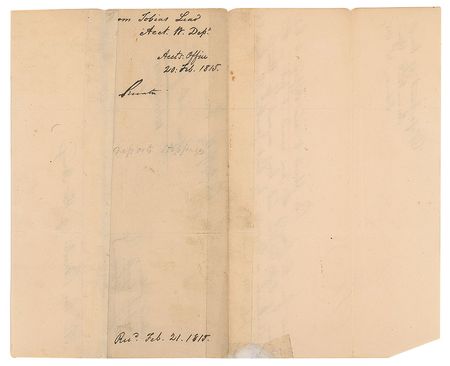 From Tobias Lear
Acct. W. Dept.
Acct's Office
20. Feb. 1815.
Private
reports
Recd. Feb. 21. 1815.